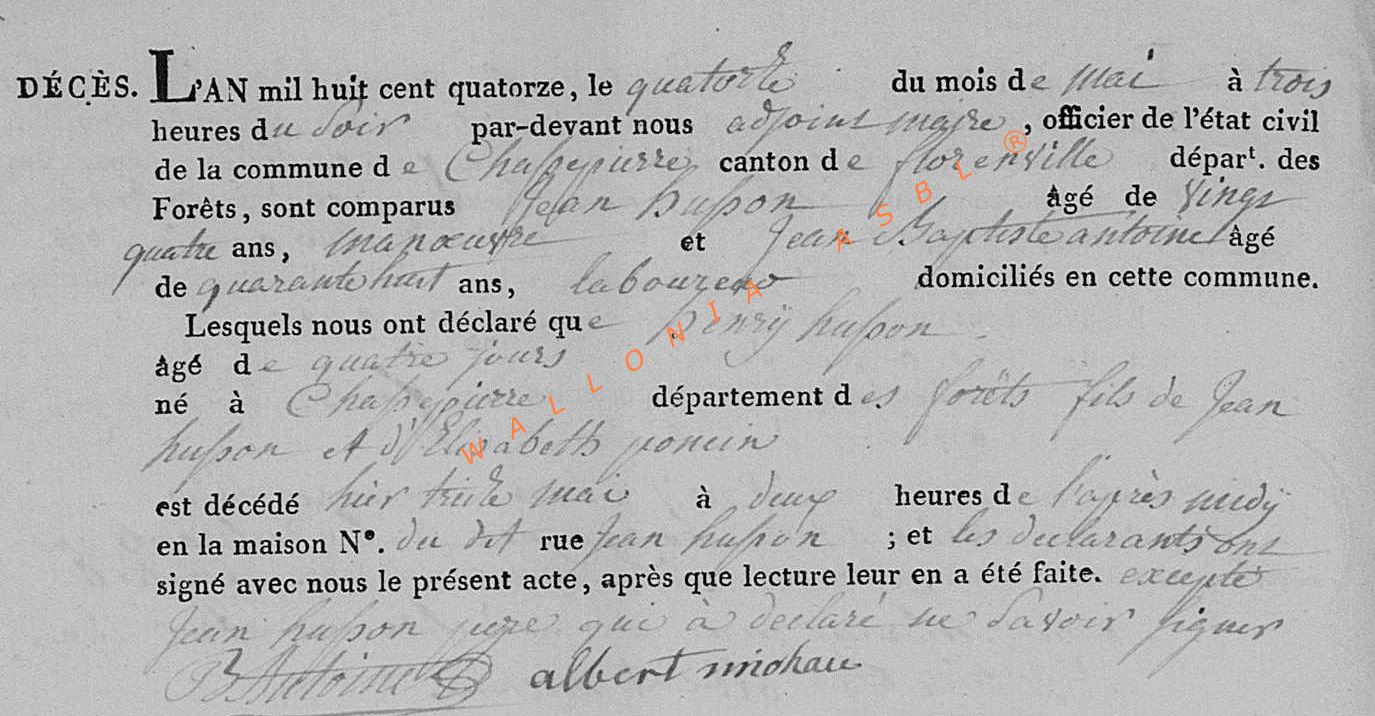 DÉCÈS. L'AN mil huit cent quatorze, le quatorze du mois de mai à trois
heures du Soir par-devant nous adjoint maire, officier de l'état civil
de la commune de Chassepierre canton de florenville départ. des
Forêts, sont comparus Jean husson âgé de Vingt
quatre ans, manoeuvre et Jean Baptiste antoine âgé
de quarante huit ans, laboureur domiciliés en cette commune.
Lesquels nous ont déclaré que henry husson
âgé de quatre jours
né à Chassepierre département des forêts fils de Jean
husson et d'Elisabeth poncin
est décédé hier treize mai à deux heures de l'après midy
en la maison Nº. du dit rue Jean husson ; et les declarants ont
signé avec nous le présent acte, après que lecture leur en a été faite. excepté
Jean husson qui à declaré ne Savoir signer
B Antoine albert
WALLONIA ASBL ®